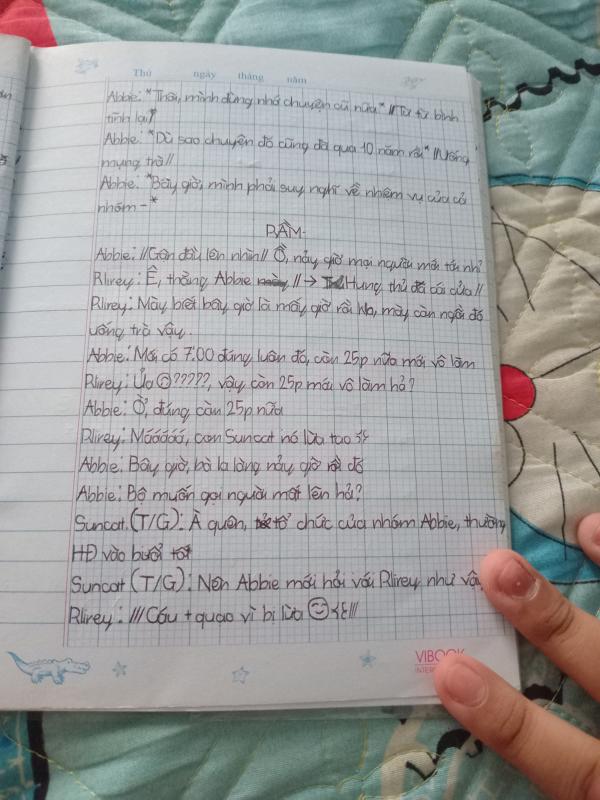 Thứ ngày tháng năm
Abbie: *Thôi, mình đừng nhớ chuyện cũ nữa* //Từ từ bình
tĩnh lại//
Abbie: *Dù sao chuyện đó cũng đã qua 10 năm rồi* //Uống
miụng trà//
Abbie: *Bây giờ, mình phải suy nghĩ về nhiệm vụ của cả
nhóm -*
RẦM-
Abbie: //Gôn đồi, lên nhìn// Ồ, nảy giờ mọi người mới tới nhỉ
Rlirey: Ê, thằng Abbie // → Hung thủ đá cái cửa//
Rlirey: Mày biết bây giờ là mấy giờ rồi ko, mày còn ngồi đó
uống trà vậy.
Abbie: Mới có 7:00 đúng luôn đó, còn 25p nữa mới vô làm
Rlirey: Ủa ?????, vậy còn 25p mới vô làm hả?
Abbie: Ờ, đúng còn 25p nữa
Rlirey: Máááááá, con Suncat nó lừa tao
Abbie: Bây giờ, bà la làng nảy giờ đó
Abbie: Bộ muốn gọi người mốt lên hả?
Suncat (T/G): À quên, tổ chức của nhóm Abbie, thường
HĐ vào buổi tối
Suncat (T/G): Nên Abbie mới hỏi với Rlirey như vậy
Rlirey: ///Cáu + quạo vì bị lừa ///
VIBOOK